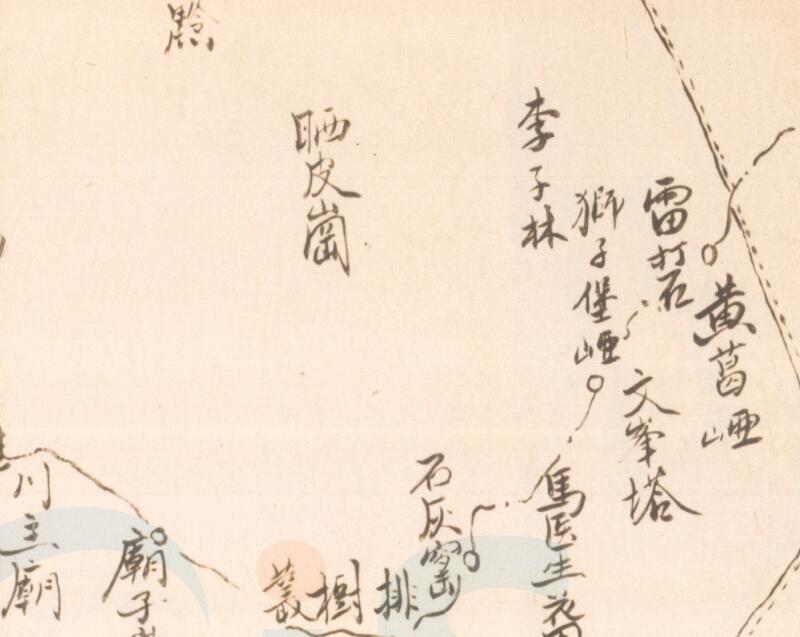 黃葛峌
雷打石
文峯塔
獅子堡峌
李子林
馬医生花
石灰窰
排樹叢
晒皮崗
黔
廟子
川主廟